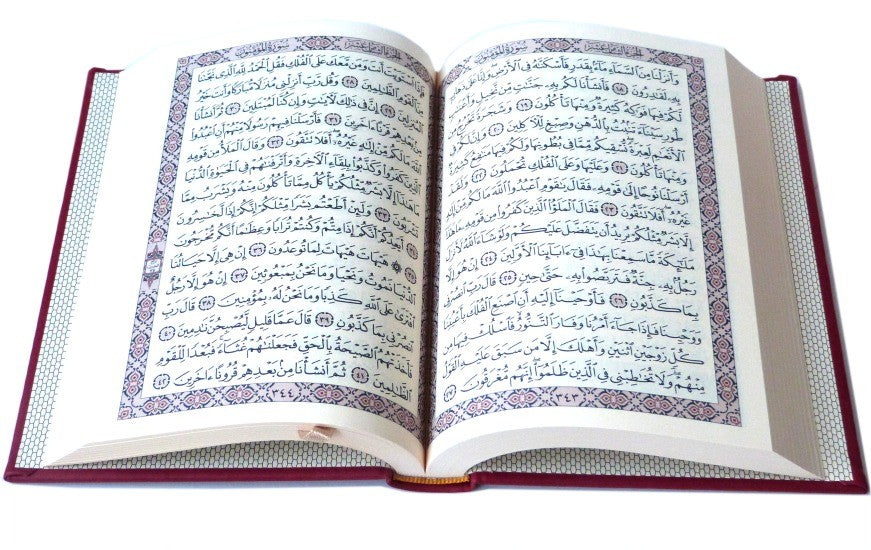 سُورَةُ المُؤْمِنُونَ الجُزْءُ الثَّامِنَ عَشَرَ
وَأَنزَلْنَا مِنَ ٱلسَّمَآءِ مَآءًۢ بِقَدَرٍ فَأَسْكَنَّٰهُ فِي ٱلْأَرْضِ وَإِنَّا عَلَىٰ ذَهَابٍۭ
بِهِۦ لَقَٰدِرُونَ ١٨ فَأَنشَأْنَا لَكُم بِهِۦ جَنَّٰتٍ مِّن نَّخِيلٍ وَأَعْنَٰبٍ
لَّكُمْ فِيهَا فَوَٰكِهُ كَثِيرَةٌ وَمِنْهَا تَأْكُلُونَ ١٩ وَشَجَرَةً تَخْرُجُ مِن
طُورِ سَيْنَآءَ تَنۢبُتُ بِٱلدُّهْنِ وَصِبْغٍ لِّلْءَاكِلِينَ ٢٠ وَإِنَّ لَكُمْ فِي
ٱلْأَنْعَٰمِ لَعِبْرَةً نُّسْقِيكُم مِّمَّا فِي بُطُونِهَا وَلَكُمْ فِيهَا مَنَٰفِعُ كَثِيرَةٌ
وَمِنْهَا تَأْكُلُونَ ٢١ وَعَلَيْهَا وَعَلَى ٱلْفُلْكِ تُحْمَلُونَ ٢٢ وَلَقَدْ
أَرْسَلْنَا نُوحًا إِلَىٰ قَوْمِهِۦ فَقَالَ يَٰقَوْمِ ٱعْبُدُوا۟ ٱللَّهَ مَا لَكُم مِّنْ إِلَٰهٍ
غَيْرُهُۥٓ أَفَلَا تَتَّقُونَ ٢٣ فَقَالَ ٱلْمَلَؤُا۟ ٱلَّذِينَ كَفَرُوا۟ مِن قَوْمِهِۦ مَا هَٰذَآ
إِلَّا بَشَرٌ مِّثْلُكُمْ يُرِيدُ أَن يَتَفَضَّلَ عَلَيْكُمْ وَلَوْ شَآءَ ٱللَّهُ لَأَنزَلَ
مَلَٰٓئِكَةً مَّا سَمِعْنَا بِهَٰذَا فِيٓ ءَابَآئِنَا ٱلْأَوَّلِينَ ٢٤ إِنْ هُوَ إِلَّا
رَجُلٌۢ بِهِۦ جِنَّةٌ فَتَرَبَّصُوا۟ بِهِۦ حَتَّىٰ حِينٍ ٢٥ قَالَ رَبِّ ٱنصُرْنِي
بِمَا كَذَّبُونِ ٢٦ فَأَوْحَيْنَآ إِلَيْهِ أَنِ ٱصْنَعِ ٱلْفُلْكَ بِأَعْيُنِنَا
وَوَحْيِنَا فَإِذَا جَآءَ أَمْرُنَا وَفَارَ ٱلتَّنُّورُ فَٱسْلُكْ فِيهَا مِن
كُلٍّ زَوْجَيْنِ ٱثْنَيْنِ وَأَهْلَكَ إِلَّا مَن سَبَقَ عَلَيْهِ ٱلْقَوْلُ
مِنْهُمْ وَلَا تُخَٰطِبْنِي فِي ٱلَّذِينَ ظَلَمُوٓا۟ إِنَّهُم مُّغْرَقُونَ ٢٧
٣٤٣
الجُزْءُ الثَّامِنَ عَشَرَ سُورَةُ المُؤْمِنُونَ
فَإِذَا ٱسْتَوَيْتَ أَنتَ وَمَن مَّعَكَ عَلَى ٱلْفُلْكِ فَقُلِ ٱلْحَمْدُ لِلَّهِ ٱلَّذِي نَجَّىٰنَا
مِنَ ٱلْقَوْمِ ٱلظَّٰلِمِينَ ٢٨ وَقُل رَّبِّ أَنزِلْنِي مُنزَلًا مُّبَارَكًا وَأَنتَ خَيْرُ
ٱلْمُنزِلِينَ ٢٩ إِنَّ فِي ذَٰلِكَ لَءَايَٰتٍ وَإِن كُنَّا لَمُبْتَلِينَ ٣٠ ثُمَّ أَنشَأْنَا
مِنۢ بَعْدِهِمْ قَرْنًا ءَاخَرِينَ ٣١ فَأَرْسَلْنَا فِيهِمْ رَسُولًا مِّنْهُمْ أَنِ ٱعْبُدُوا۟
ٱللَّهَ مَا لَكُم مِّنْ إِلَٰهٍ غَيْرُهُۥٓ أَفَلَا تَتَّقُونَ ٣٢ وَقَالَ ٱلْمَلَأُ مِن قَوْمِهِ
ٱلَّذِينَ كَفَرُوا۟ وَكَذَّبُوا۟ بِلِقَآءِ ٱلْءَاخِرَةِ وَأَتْرَفْنَٰهُمْ فِي ٱلْحَيَوٰةِ ٱلدُّنْيَا
مَا هَٰذَآ إِلَّا بَشَرٌ مِّثْلُكُمْ يَأْكُلُ مِمَّا تَأْكُلُونَ مِنْهُ وَيَشْرَبُ مِمَّا
تَشْرَبُونَ ٣٣ وَلَئِنْ أَطَعْتُم بَشَرًا مِّثْلَكُمْ إِنَّكُمْ إِذًا لَّخَٰسِرُونَ
٣٤ أَيَعِدُكُمْ أَنَّكُمْ إِذَا مِتُّمْ وَكُنتُمْ تُرَابًا وَعِظَٰمًا أَنَّكُم مُّخْرَجُونَ
٣٥ ۞ هَيْهَاتَ هَيْهَاتَ لِمَا تُوعَدُونَ ٣٦ إِنْ هِيَ إِلَّا حَيَاتُنَا
ٱلدُّنْيَا نَمُوتُ وَنَحْيَا وَمَا نَحْنُ بِمَبْعُوثِينَ ٣٧ إِنْ هُوَ إِلَّا رَجُلٌ
ٱفْتَرَىٰ عَلَى ٱللَّهِ كَذِبًا وَمَا نَحْنُ لَهُۥ بِمُؤْمِنِينَ ٣٨ قَالَ رَبِّ
ٱنصُرْنِي بِمَا كَذَّبُونِ ٣٩ قَالَ عَمَّا قَلِيلٍ لَّيُصْبِحُنَّ نَٰدِمِينَ ٤٠
فَأَخَذَتْهُمُ ٱلصَّيْحَةُ بِٱلْحَقِّ فَجَعَلْنَٰهُمْ غُثَآءً فَبُعْدًا لِّلْقَوْمِ
ٱلظَّٰلِمِينَ ٤١ ثُمَّ أَنشَأْنَا مِنۢ بَعْدِهِمْ قُرُونًا ءَاخَرِينَ ٤٢
٣٤٤